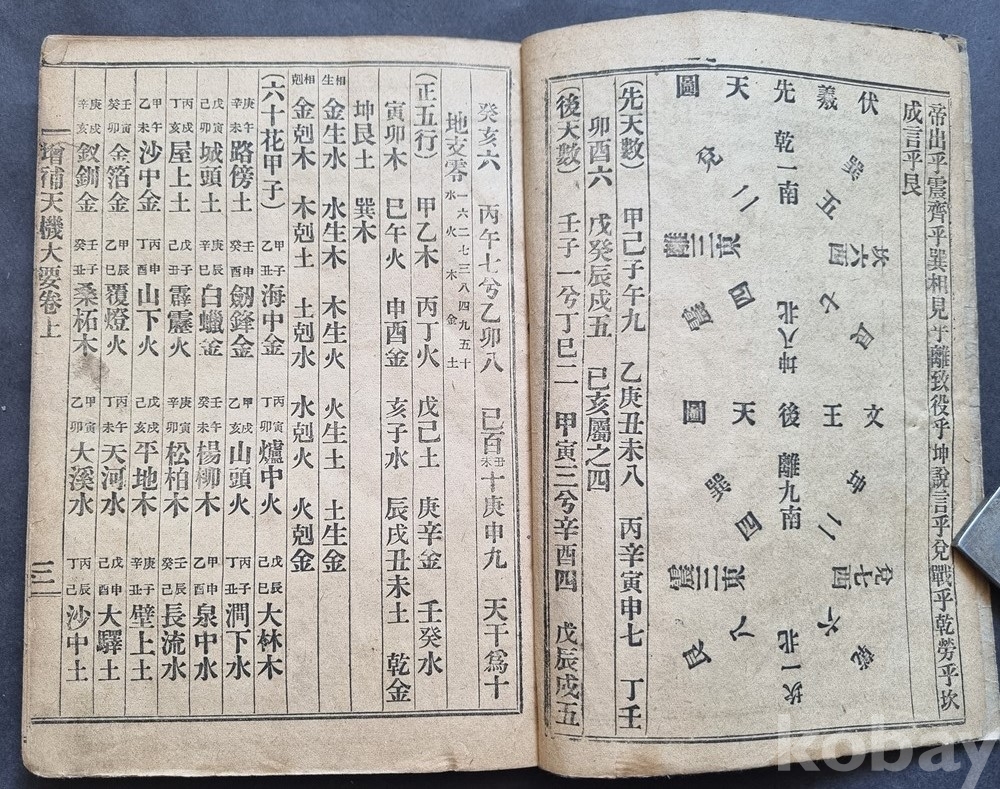 帝出乎震齊乎巽相見乎離致役乎坤說言乎兌戰乎乾勞乎坎
成言乎艮
伏羲先天圖
乾一南
兌二
離三東
震四
巽五
坎六西
艮七
坤八北
文王後天圖
離九南
坤二
兌七西
乾六
坎一北
艮八
震三東
巽四
(先天數) 甲己子午九 乙庚丑未八 丙辛寅申七 丁壬
卯酉六 戊癸辰戌五 巳亥屬之四
(後天數) 壬子一兮丁巳二 甲寅三兮辛酉四 戊辰戌五
癸亥六 丙午七兮乙卯八 己百丑未十庚申九 天干爲十
地支零 水一六火二七木三八金四九土五十
(正五行) 甲乙木 丙丁火 戊己土 庚辛金 壬癸水
寅卯木 巳午火 申酉金 亥子水 辰戌丑未土 乾金
坤艮土 巽木
相生 金生水 水生木 木生火 火生土 土生金
相剋 金剋木 木剋土 土剋水 水剋火 火剋金
(六十花甲子) 甲子乙丑海中金 丙寅丁卯爐中火 戊辰己巳大林木
庚午辛未路傍土 壬申癸酉劒鋒金 甲戌乙亥山頭火 丙子丁丑澗下水
戊寅己卯城頭土 庚辰辛巳白蠟金 壬午癸未楊柳木 甲申乙酉泉中水
丙戌丁亥屋上土 戊子己丑霹靂火 庚寅辛卯松柏木 壬辰癸巳長流水
甲午乙未沙中金 丙申丁酉山下火 戊戌己亥平地木 庚子辛丑壁上土
壬寅癸卯金箔金 甲辰乙巳覆燈火 丙午丁未天河水 戊申己酉大驛土
庚戌辛亥釵釧金 壬子癸丑桑柘木 甲寅乙卯大溪水 丙辰丁巳沙中土
增補天機大要卷上
三
kobay